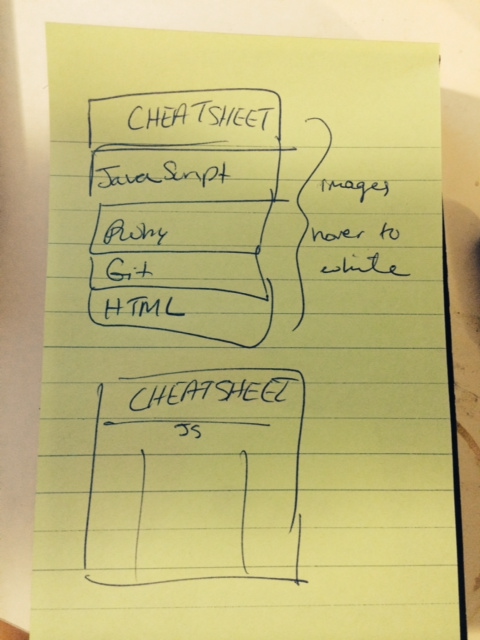 CHEATSHEET
JavaScript
Ruby
Git
HTML
images
hover to
white
CHEATSHEET
JS